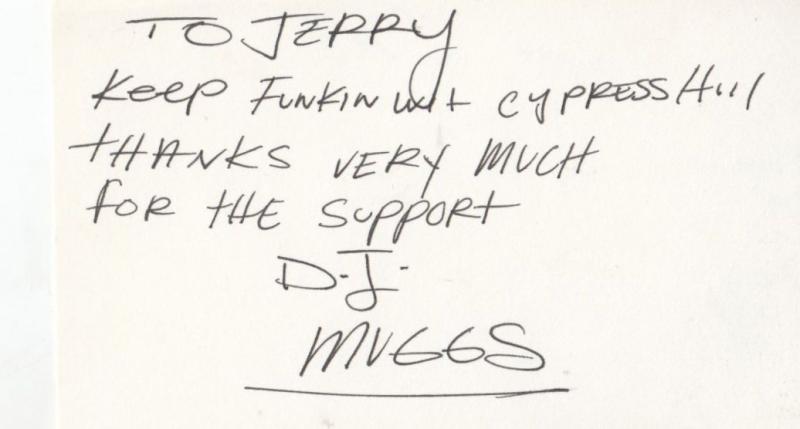 TO JERRY
KEEP FUNKIN wit CYPRESS Hill
THANKS VERY MUCH
foR THE SUPPORT
D.J.
MUGGS